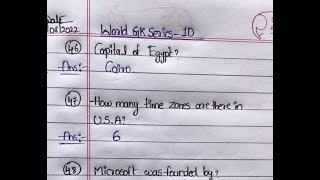 Date
World GK Series - 10
(46) Capital of Egypt?
Ans: Cairo.
(47) How many time zones are there in
U.S.A?
Ans: 6
(48) Microsoft was founded by?